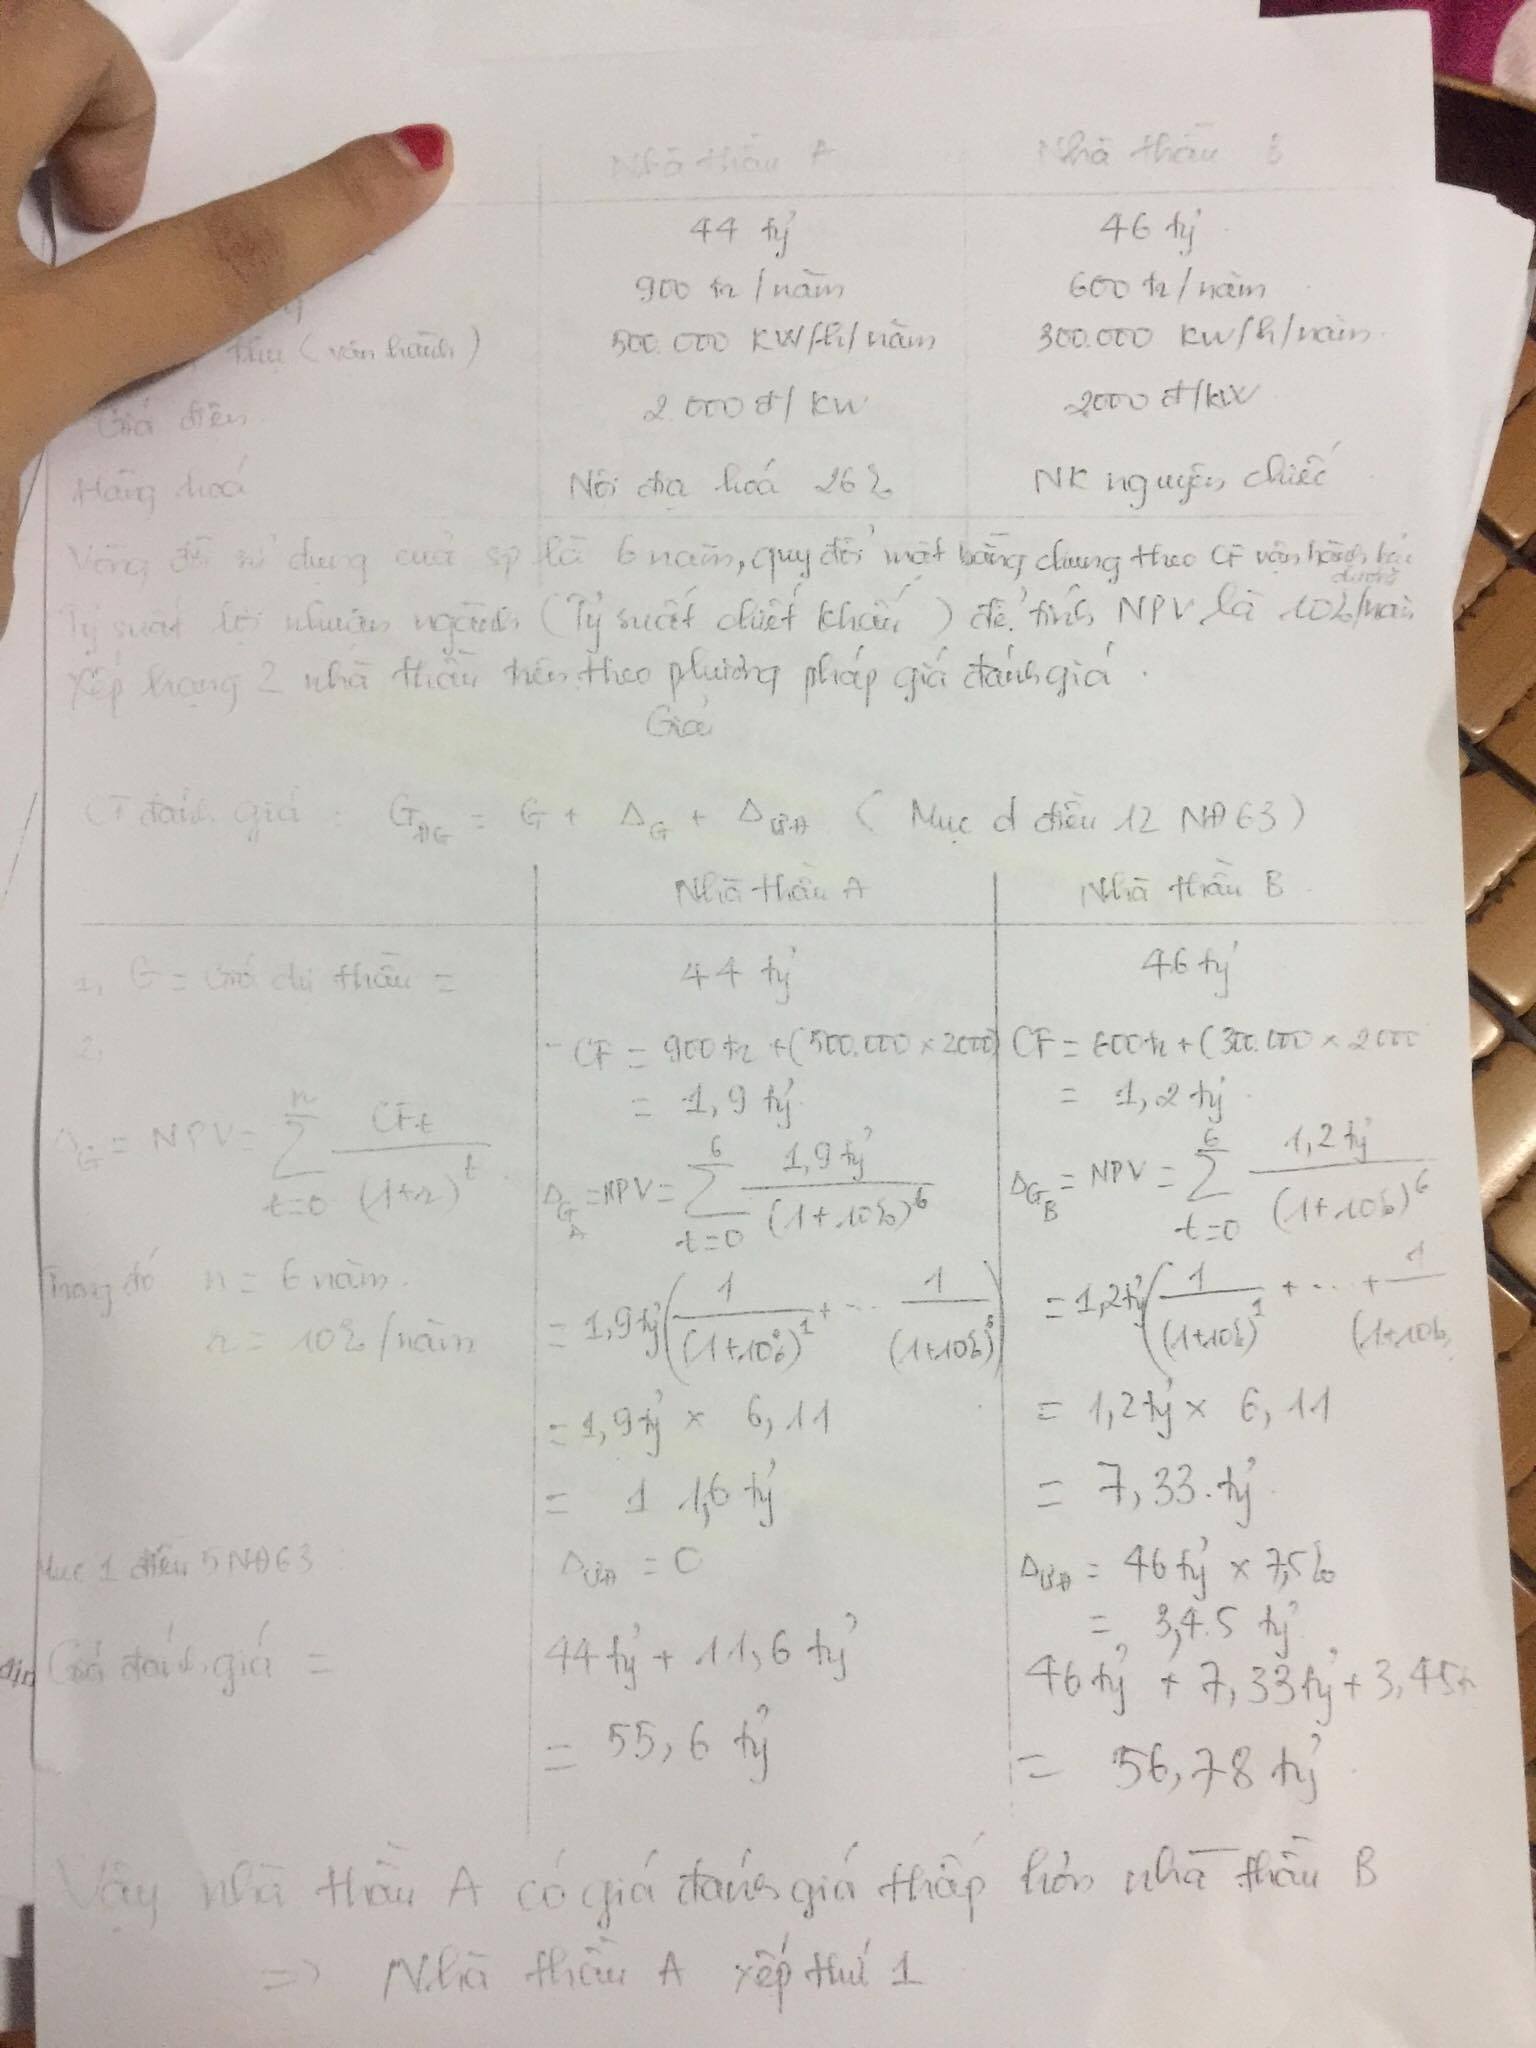 Nhà thầu A Nhà thầu B
44 tỷ 46 tỷ
900 tr/năm 600 tr/năm
thụ (vận hành) 500.000 KW/h/năm 300.000 KW/h/năm
Giá điện 2.000đ/KW 2000đ/KW
Hàng hoá Nội địa hoá 26% NK nguyên chiếc
Vòng đời sử dụng của sp là 6 năm, quy đổi mặt bằng chung theo CF vận hành bảo dưỡng
Tỷ suất lợi nhuận ngành (Tỷ suất chiết khấu) để tính NPV là 10%/năm
Xếp hạng 2 nhà thầu trên theo phương pháp giá đánh giá.
Giải
CT đánh giá : G_ĐG = G + Δ_G + Δ_ƯĐ (Mục d điều 12 NĐ63)
Nhà thầu A Nhà thầu B
1, G = Giá dự thầu = 44 tỷ 46 tỷ
2, - CF = 900tr + (500.000 × 2000) CF = 600tr + (300.000 × 2000
= 1,9 tỷ = 1,2 tỷ
Δ_G = NPV = Σ_{t=0}^{n} CFt/(1+r)^t Δ_{G_A} = NPV = Σ_{t=0}^{6} 1,9 tỷ/(1+10%)^6 Δ_{G_B} = NPV = Σ_{t=0}^{6} 1,2 tỷ/(1+10%)^6
Trong đó n = 6 năm.
r = 10%/năm = 1,9 tỷ (1/(1+10%)^1 + ... 1/(1+10%)^6) = 1,2 tỷ (1/(1+10%)^1 + ... + 1/(1+10%
= 1,9 tỷ × 6,11 = 1,2 tỷ × 6,11
= 11,6 tỷ = 7,33 tỷ
Mục 1 điều 5 NĐ63 : Δ_ƯĐ = 0 Δ_ƯĐ = 46 tỷ × 7,5%
= 3,45 tỷ
Giá đánh giá = 44 tỷ + 11,6 tỷ 46 tỷ + 7,33 tỷ + 3,45t
= 55,6 tỷ = 56,78 tỷ
Vậy nhà thầu A có giá đánh giá thấp hơn nhà thầu B
=> Nhà thầu A xếp thứ 1